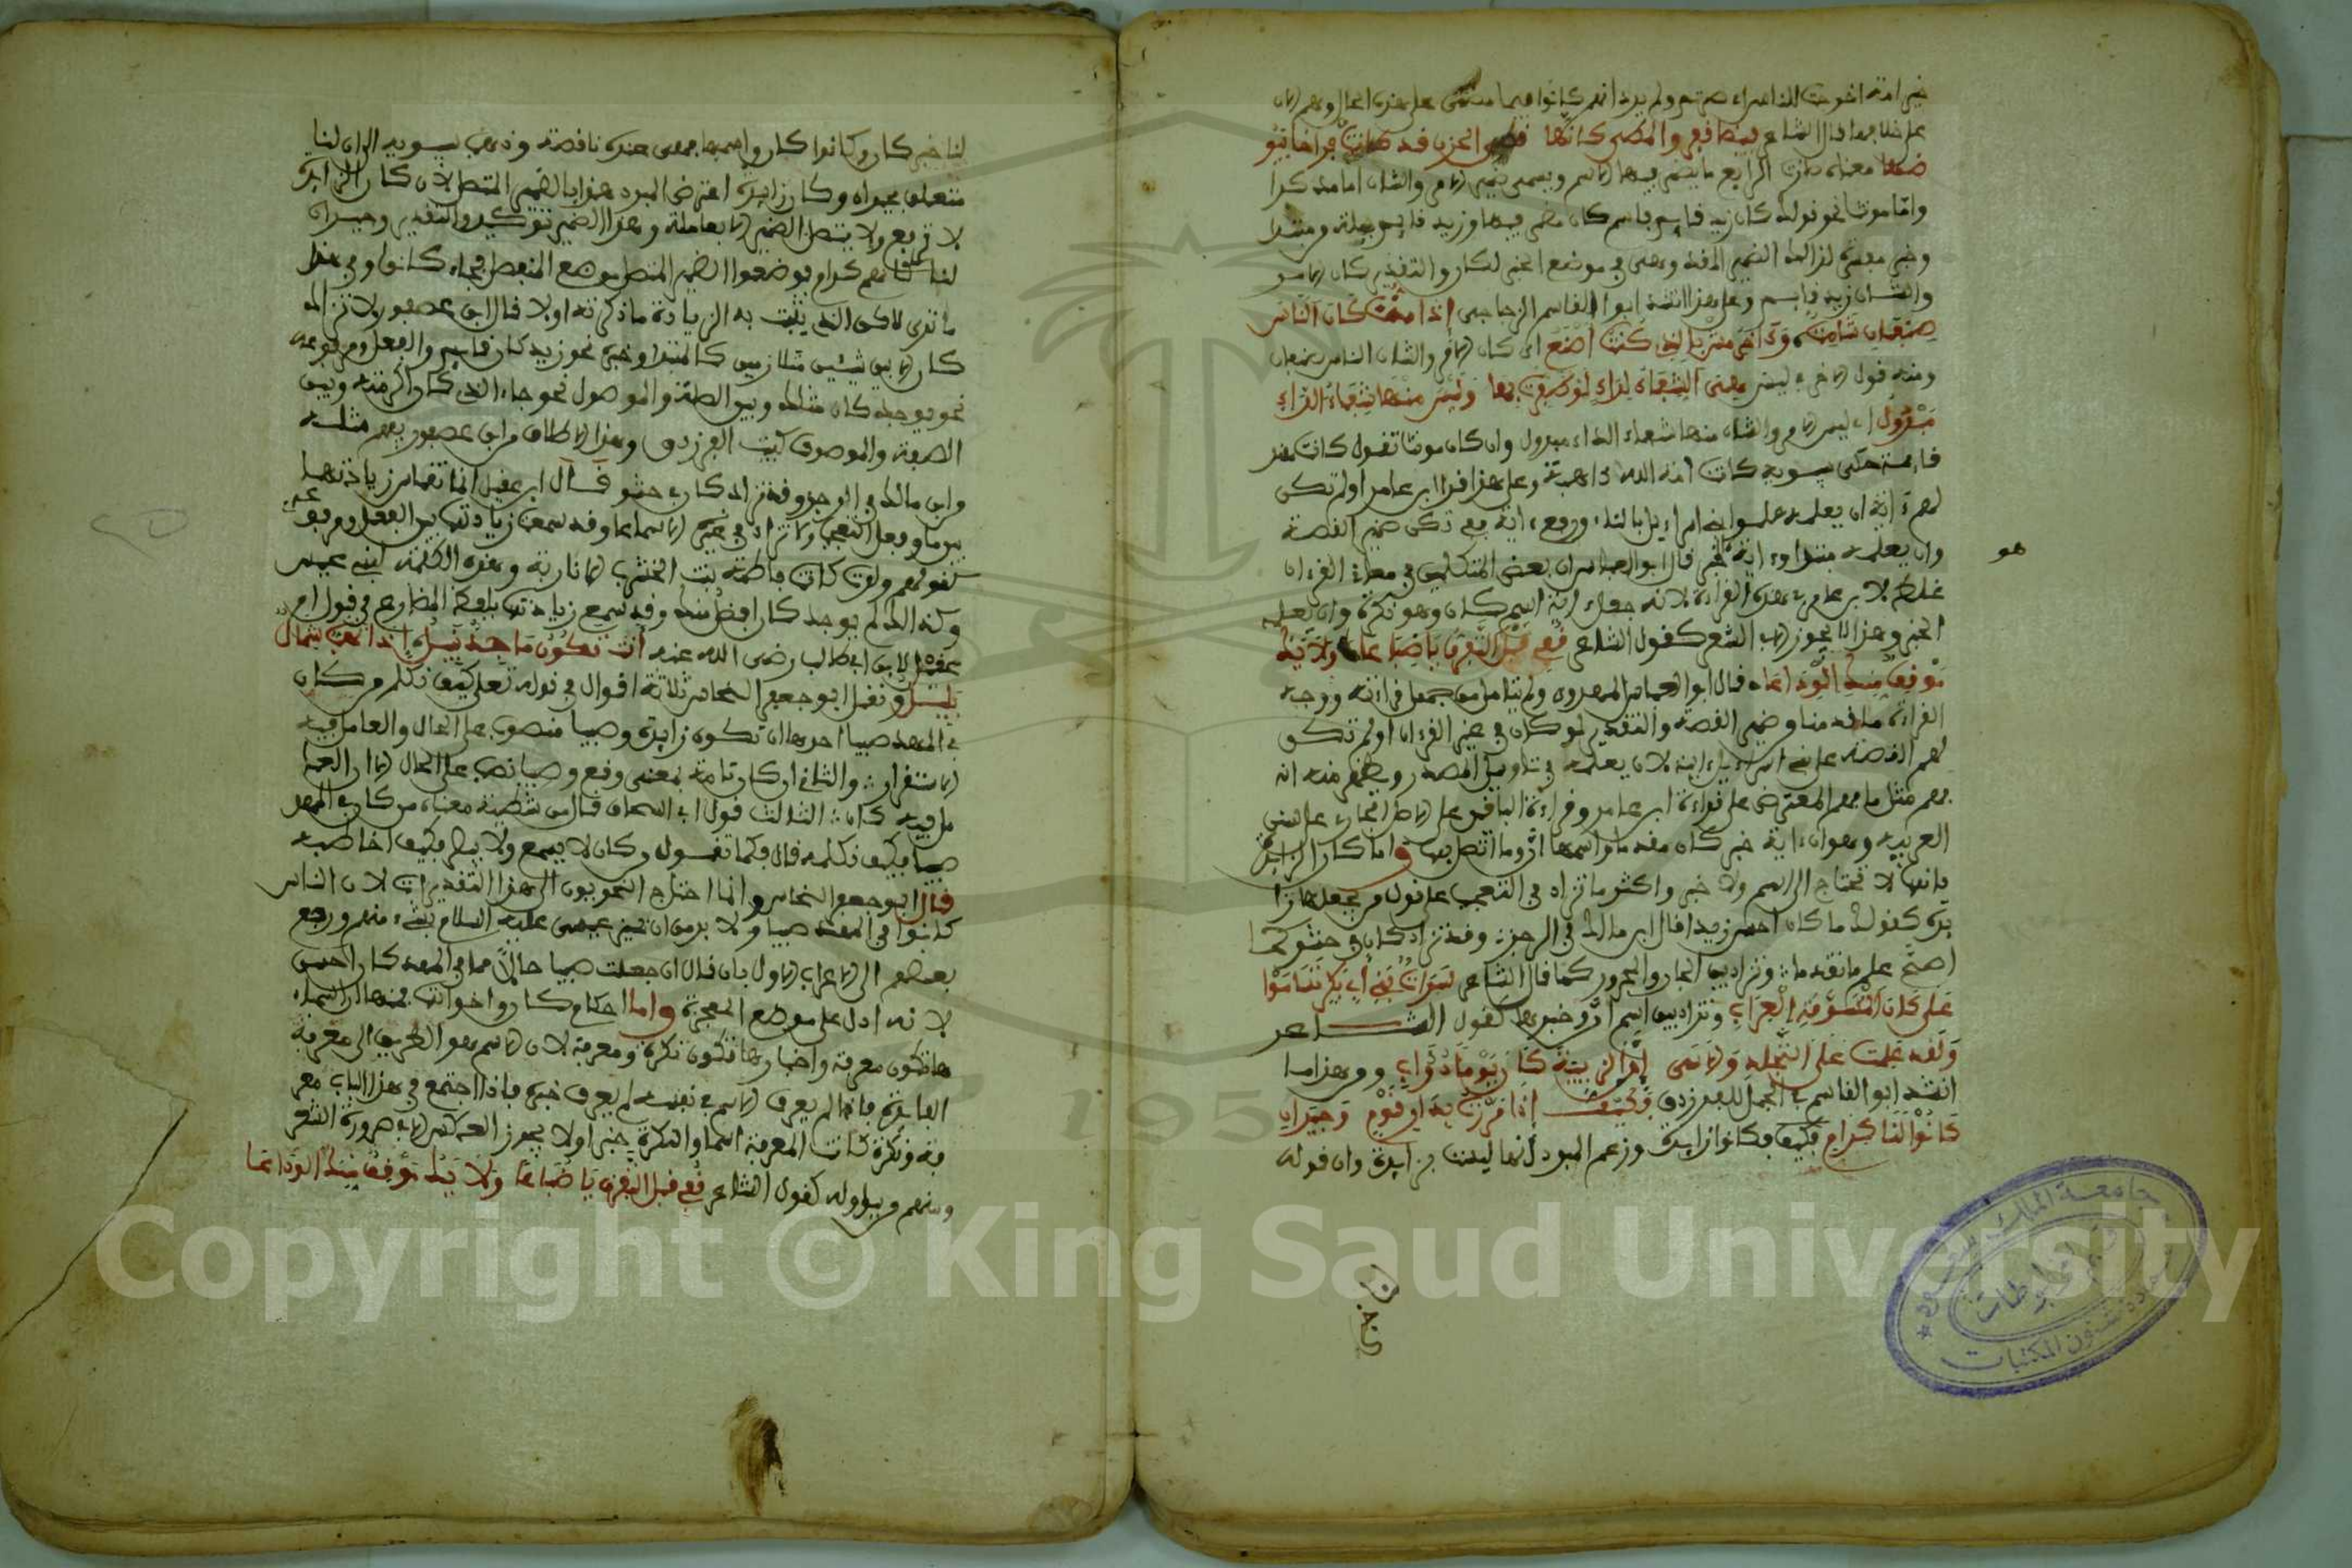 خير امة اخرجت للناس اي صرتم ولم يرد انهم كانوا فيما مضى على هذه الحال وهم الان
على خلافها قال الشاعر بتيهاء قفر والمطي كانها قطى الحزن قد كانت فراخا بيو
ضها معناه صارت الرابع ما يضمر فيها الاسم ويسمى ضمير الامر والشان اما مذكرا
واما مونثا نحو قولك كان زيد قايم فاسم كان مضمر فيها وزيد قايم جملة من مبتدا
وخبر مفسرة لذلك الضمير المقدر وهي في موضع الخبر لكان والتقدير كان الامر
والشان زيد قايم وعلى هذا انشد ابو القاسم الزجاجي اذا مت كان الناس
صنفان شامت وءاخر مثن بالذي كنت اصنع اي كان الامر والشان الناس صنفان
ومنه قول الاخر ليس هي الشفاء لداءي لو ظفرت بها وليس منها شفاء الداء
مبذول اي ليس الامر والشان منها شفاء الداء مبذول وان كان مونثا تقول كانت هند
قايمة حكى سيبويه كانت امة الله ذاهبة وعلى هذا قرا ابن عامر اولم تكن
لهم ءاية ان يعلمه علموا بني اسراءيل بالتاء ورفع ءاية ففي تكن ضمير القصة
وان يعلمه مبتدا وءاية خبر قال ابو العباس ان بعض المتكلمين في معاني القرءان
هو
غلط لابن عامر في هذه القراءة لانه جعل ءاية اسم كان وهو نكرة وان يعلمه
الخبر وهذا لا يجوز الا في الشعر كقول الشاعر قفي قبل التفرق يا ضباعا ولا يك
موقف منك الوداعا قال ابو العباس المهدوي ولم يتامل من جهل قراءته ووجه
القراءة ما قدمنا وضمير القصة والتقدير لو كان في غير القرءان اولم تكن
لهم القصة علم بني اسراءيل ءاية لان يعلمه في تاويل المصدر ويظهر منه انه
فهم مثل ما فهم المعترض على قراءة ابن عامر وقراءة الباقين على الاصل الجاري على سنن
العربية وهو ان ءاية خبر كان مقدما واسمها ان وما اتصل بها واما كان الزايدة
فانها لا تحتاج الى اسم ولا خبر واكثر ما تزاد في التعجب على قول من يجعلها زا
يدة كقولك ما كان احسن زيدا قال ابن مالك في الرجز وقد تزاد كان في حشو كما
اصح علم ما تقدما وتزاد بين الجار والمجرور كما قال الشاعر سراة بني ابي بكر تساموا
على كان المسومة العراب وتزاد بين اسم ان وخبرها كقول الشاعر
ولقد علمت على التجلد والاسى ان الرزية كان يوم ذؤاب ومن هذا ما
انشد ابو القاسم في الجمل للفرزدق فكيف اذا مررت بدار قوم وجيران
كانوا لنا كرام فكيف فكانوا زايدة وزعم المبرد انها ليست بزايدة وان قوله
لنا خبر كان وكانوا كان واسمها فهي عنده ناقصة وذهب سيبويه الى ان لنا
متعلق بجيران وكان زايدة اعترض المبرد هذا بالضمير المتصل لان كان الزايدة
لا ترفع ولا يتصل الضمير الا بعامله وهذا الضمير توكيد والتقدير وجيران
لنا هم كرام فوضعوا الضمير المتصل موضع المنفصل فجاء كانوا وفي هذا
ما ترى لاكن الذي يثبت به الزيادة ما ذكرته اولا قال ابن عصفور ولا تزاد
كان الا بين شيئين متلازمين كالمبتدا وخبره نحو زيد كان قايم والفعل ومرفوعه
نحو يوجد كان مثلك وبين الصلة والموصول نحو جاء الذي كان اكرمته وبين
الصفة والموصوف كبيت الفرزدق وهذا الاطلاق من ابن عصفور يفهم مثله
وابن مالك في الرجز وقد تزاد كان في حشو قال ابن عقيل انما تنقاس زيادتها
بين ما وفعل التعجب ولا تزاد في غيره الا سماعا وقد سمعت زيادتها بين الفعل ومرفوعه
كقولهم ولدت فاطمة بنت الخرشب الانمارية وهذه الكلمة لبني عبس
وكذلك لم يوجد كان افضل منك وقد سمع زيادتها بلفظ المضارع في قول ام
عقيل بن ابي طالب رضي الله عنه انت تكون ماجد نبيل اذا تهب شمال
بليل ونقل ابو جعفر النحاس ثلاثة اقوال في قوله تعلى كيف نكلم من كان
في المهد صبيا احدها ان تكون زايدة وصبيا منصوب على الحال والعامل فيه
الاستقرار والثاني ان كان تامة بمعنى وقع وصبيا نصب على الحال الا ان العا
مل فيه كان الثالث قول ابي اسحاق قال من شرطية معناه من كان في المهد
صبيا فكيف نكلمه قال فكما تقول من كان لا يسمع ولا يبصر فكيف اخاطبه
قال ابو جعفر النحاس وانما احتاج النحويون الى هذا التقديرات لان الناس
كانوا في المهد صبيا ولا بد من ان تميز عيسى عليه السلام بشيء منهم ورجع
بعضهم الى الاعراب الاول بان قال ان جعلت صبيا حالا مما في المهد كان احسن
لانه ادل على موضع المعجزة واما احكام كان واخواتها فمنها ان اسماء
ها تكون معرفة واخبارها تكون نكرة ومعرفة لان الاسم هو الطريق الى معرفة
الفايدة فاذا لم يعرف الاسم في نفسه لم يعرف خبره فاذا اجتمع في هذا الباب معر
فة ونكرة كانت المعرفة اسما والنكرة خبرا ولا يجوز العكس الا في ضرورة الشعر
ومنهم من يتاوله كقول الشاعر قفي قبل التفرق يا ضباعا ولا يك موقف منك الوداعا
جامعة الملك سعود
عمادة شئون المكتبات
Copyright © King Saud University
195